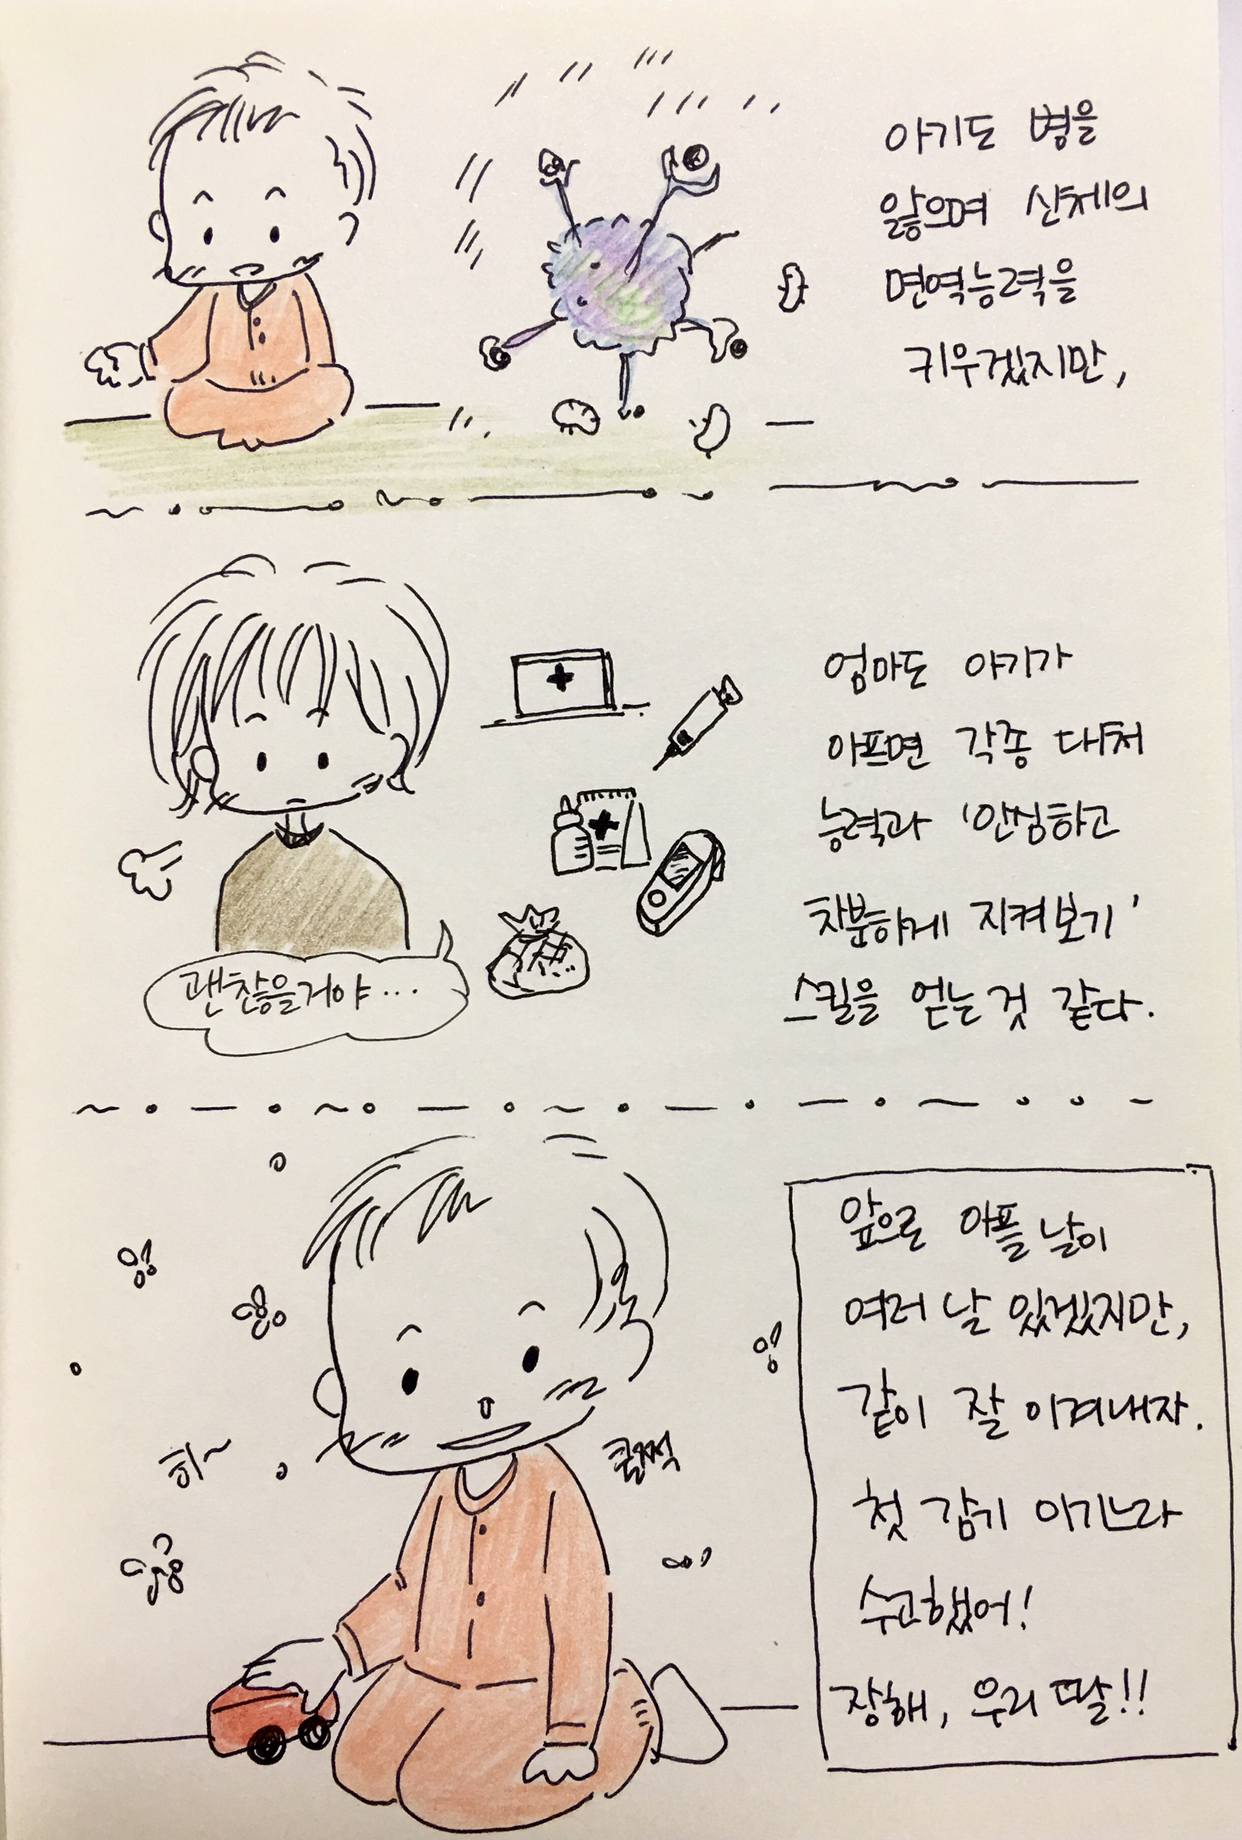 아기도 병을
앓으며 신체의
면역능력을
키우겠지만,
엄마도 아기가
아프면 각종 대처
능력과 '안심하고
차분하게 지켜보기'
스킬을 얻는 것 같다.
괜찮을거야...
앞으로 아플 날이
여러 날 있겠지만,
같이 잘 이겨내자.
첫 감기 이기느라
수고했어!
장해, 우리 딸!!
히~
훌쩍